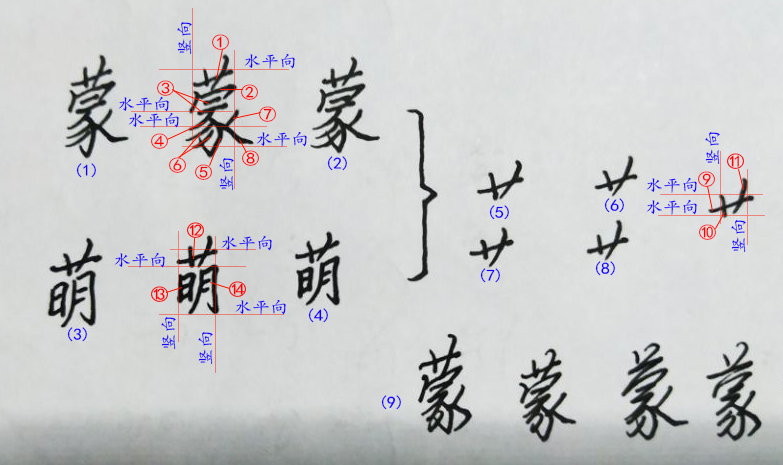 竖向
① 水平向
③ ②
水平向 ⑦
水平向
④ 水平向
⑥ ⑤ ⑧
竖向
蒙 蒙 蒙
(1) (2)
艹 艹 艹
(5) (6)
竖向
⑪
水平向 ⑨
水平向
⑩
竖向
艹 艹
(7) (8)
⑫
水平向
水平向
⑬ ⑭
水平向
竖向 竖向
萌 萌 萌
(3) (4)
(9) 蒙 蒙 蒙 蒙